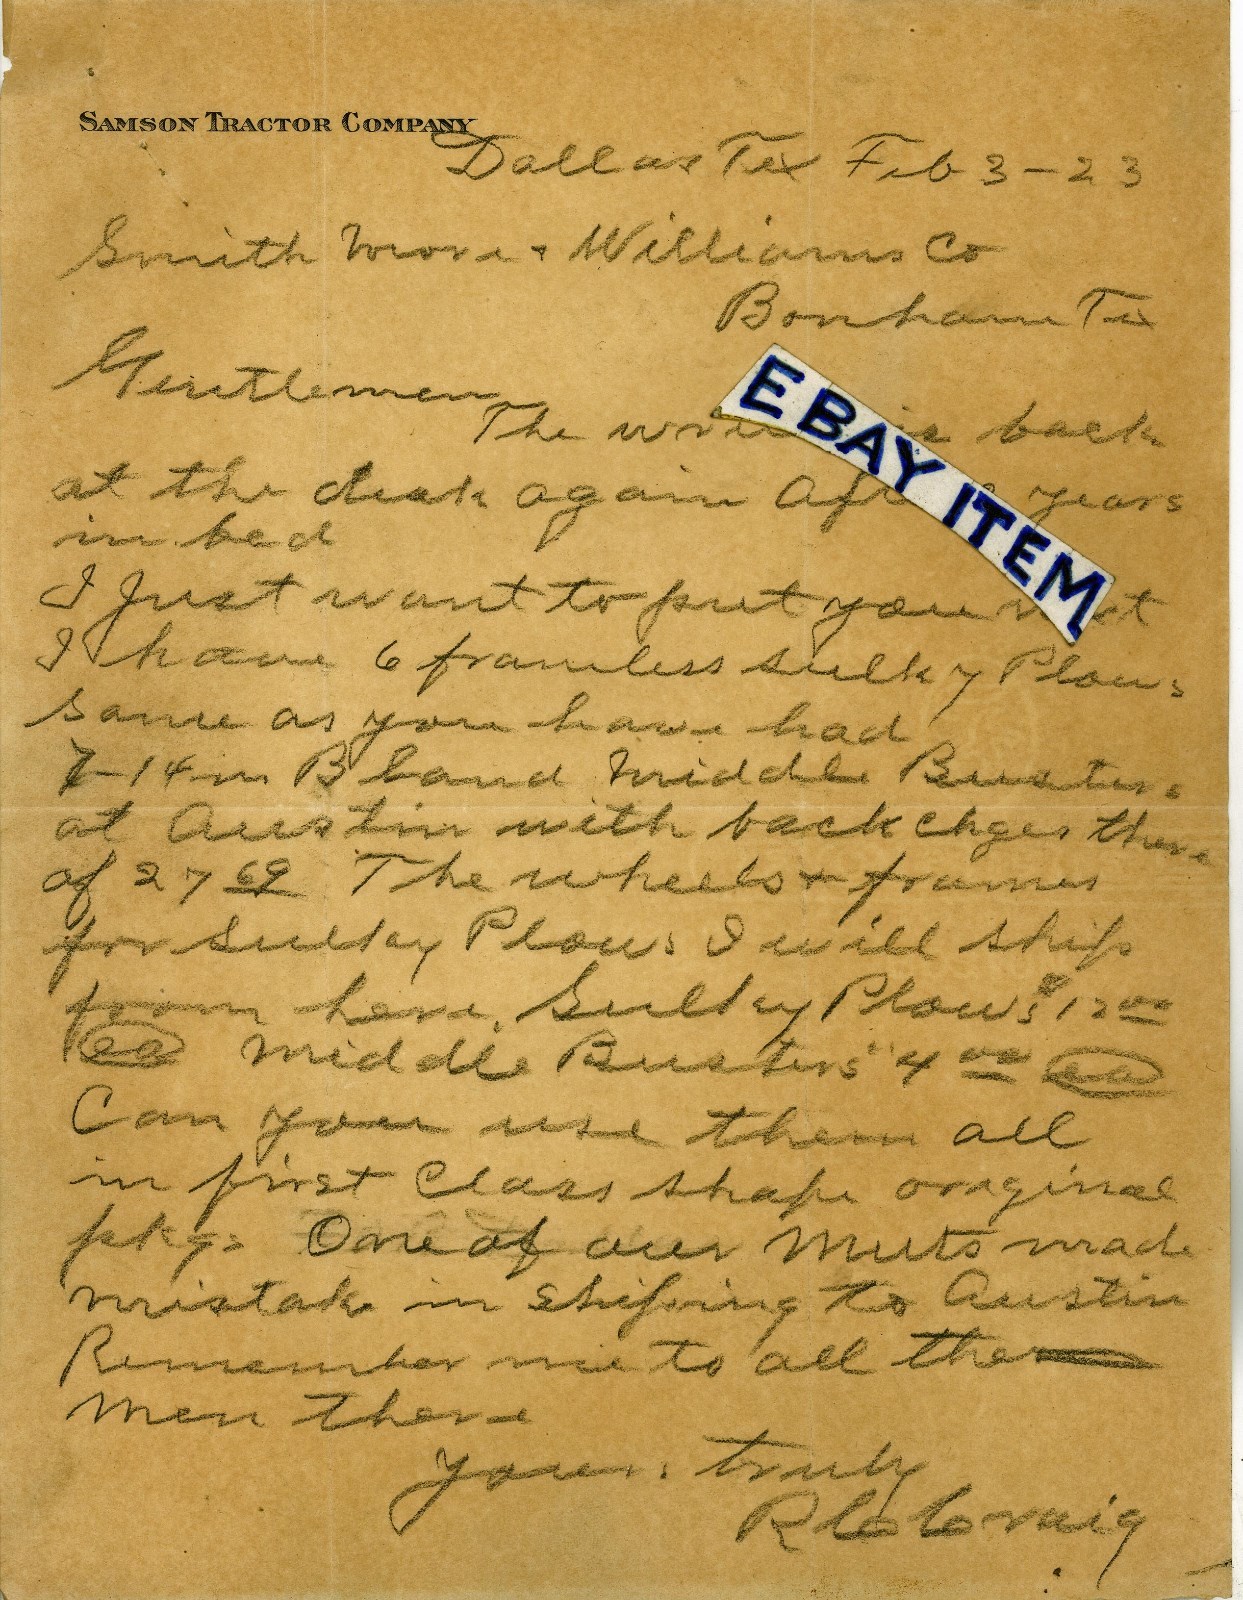 SAMSON TRACTOR COMPANY
Dallas Tex Feb 3-23
Smith Moore & Williams Co
Bonham Tex
Gentlemen
The is back
EBAY ITEM
at the desk again years
in bed
I Just want to put you
I have 6 frameless sulky Plows
same as you have had
7-14 in B land Middle Busters
at Austin with back chges there
of 27 69 The wheels & frames
for Sulky Plows I will ship
from here. Sulky Plows $12 00
ea Middle Busters " 4 00 ea
Can you use them all
in first Class shape original
pkgs One of our Muts made
mistake in shipping to Austin
Remember me to all the
Men there
Yours truly
Craig